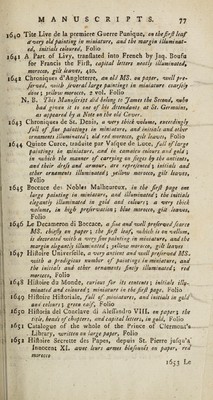 MANUSCRIPTS. 77
1640 Tite Live de la premiere Guerre Punique, on the first leaf
a very old painting in miniature, and the margin illuminat-
ed, initials coloured, Folio
1641 A Part of Livy, translated into French by Jaq. Boufu
for Francis the First, capital letters neatly illuminated,
morocco, gilt leaves, 4to.
1642 Chroniques d'Angleterre, an old MS. on paper, well pre-
served, with several large paintings in miniature coarsely
done; yellow morocco, 2 vol. Folio
N. B. This Manuscript did belong to James the Second, who
had given it to one of his attendants at St. Germains,
as appeared by a Note on the old Cover.
1643 Chroniques de St. Denis, a very thick volume, exceedingly
full of fine paintings in miniature, and initials and other
ornaments illuminated; old red morocco, gilt leaves, Folio
1644 Quinte Curce, traduite par Vasque de Luce, full of large
paintings in miniature, and in camaieu colours and gold;
in which the manner of carrying on sieges by the ancients,
and their dress and armour, are represented; initials and
other ornaments illuminated; yellow morocco, gilt leaves,
Folio
1645 Boccace des Nobles Malheureux, in the first page one
large painting in miniature, and illuminated; the initials
elegantly illuminated in gold and colours; a very thick
volume, in high preservation; blue morocco, gilt leaves,
Folio
1646 Le Decameron di Boccace, a fine and well preserved scarce
MS. chiefly on paper; the first leaf, which is on vellum,
is decorated with a very fine painting in miniature, and the
margin elegantly illuminated; yellow morocco, gilt leaves
1647 Histoire Universelle, a very ancient and well preserved MS.
with a prodigious number of paintings in miniature, and
the initials and other ornaments finely illuminated; red
morocco, Folio
1648 Histoire du Monde, curious for its contents; initials illu-
minated and coloured; miniature in the first page, Folio
1649 Histoire Historiale, full of miniatures, and initials in gold
and colours; green calf, Folio
1650 Historia del Conclave di Alessandro VIII. on paper; the
title, heads of chapters, and capital letters, in gold, Folio
1651 Catalogue of the whole of the Prince of Clermont's
Library, written on large paper, Folio
1652 Histoire Secrette des Papes, depuis St. Pierre jusqu'a
Innocent XI. avec leurs armes blasonés on paper, red
morocco
1653 Le